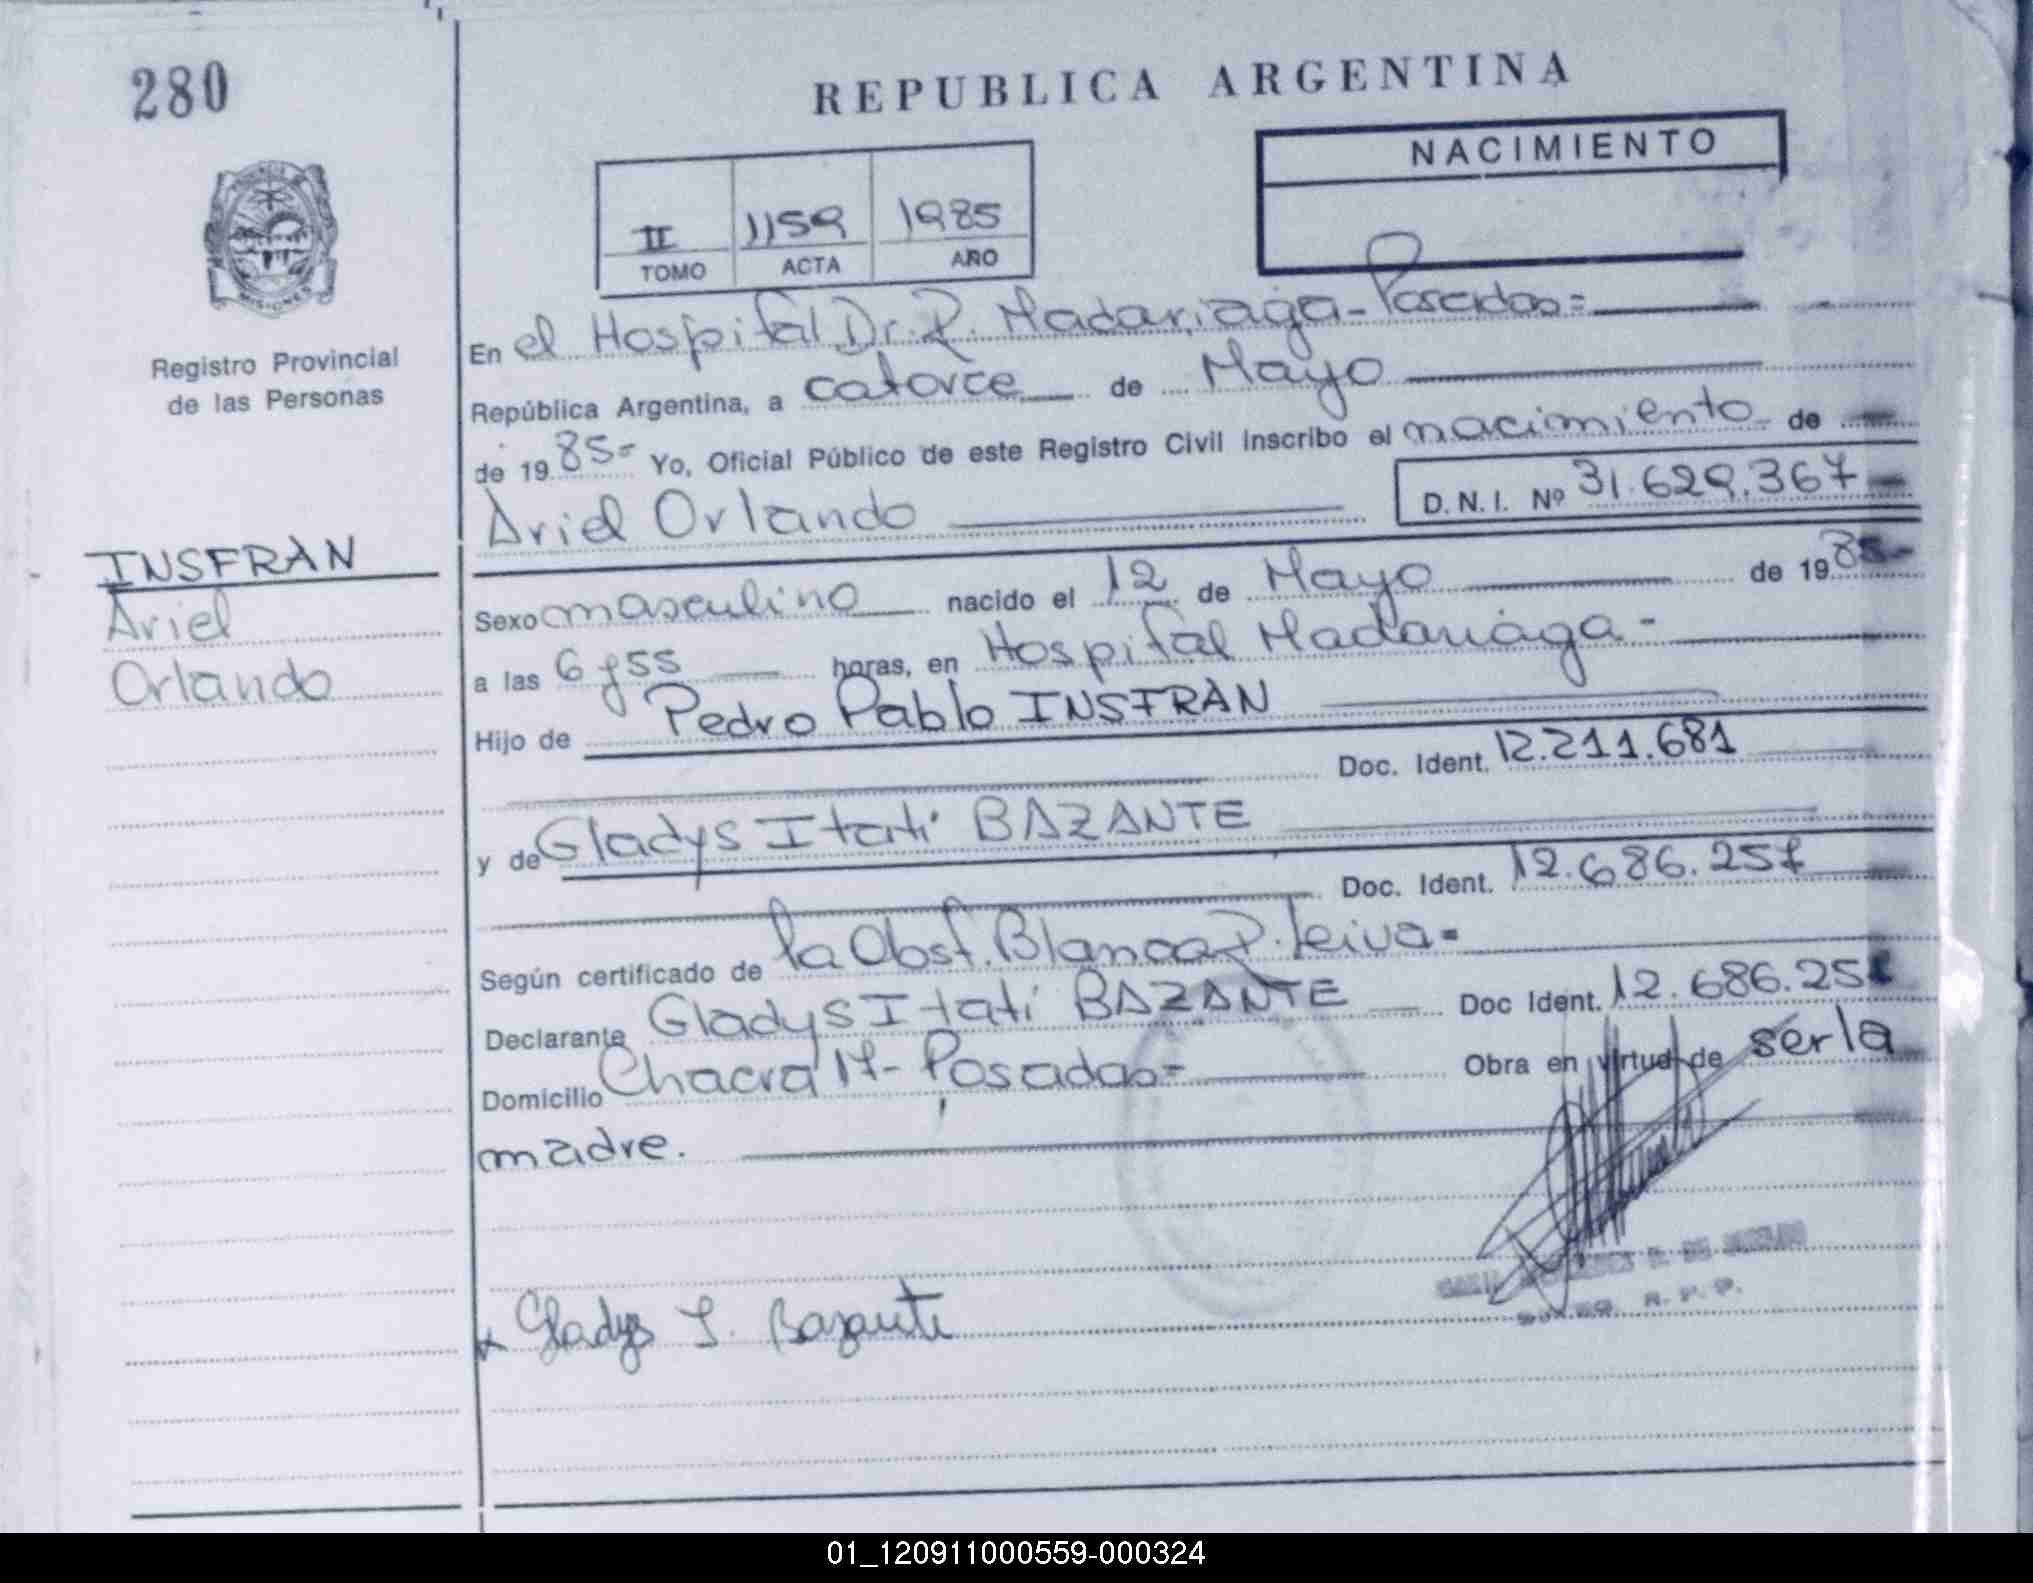 280
REPUBLICA ARGENTINA
NACIMIENTO
II 1159 1985
TOMO ACTA AÑO
MISIONES
Registro Provincial
de las Personas
INSFRAN
Ariel
Orlando
En el Hospital Dr. R. Madariaga - Posadas =
República Argentina, a catorce de Mayo
de 1985 - Yo, Oficial Público de este Registro Civil inscribo el nacimiento - de
Ariel Orlando D.N.I. Nº 31.629.367
Sexo masculino nacido el 12 de Mayo de 1985 -
a las 6 y 55 horas, en Hospital Madariaga -
Hijo de Pedro Pablo INSFRAN
Doc. Ident. 12.211.681
y de Gladys Itatí BAZANTE
Doc. Ident. 12.686.257
Según certificado de la Obst. Blanca R. Leiva =
Declarante Gladys Itatí BAZANTE Doc Ident. 12.686.25
Domicilio Chacra 17 - Posadas = Obra en virtud de ser la
madre.
Gladys I. Bazante
R. P. P.
01_120911000559-000324